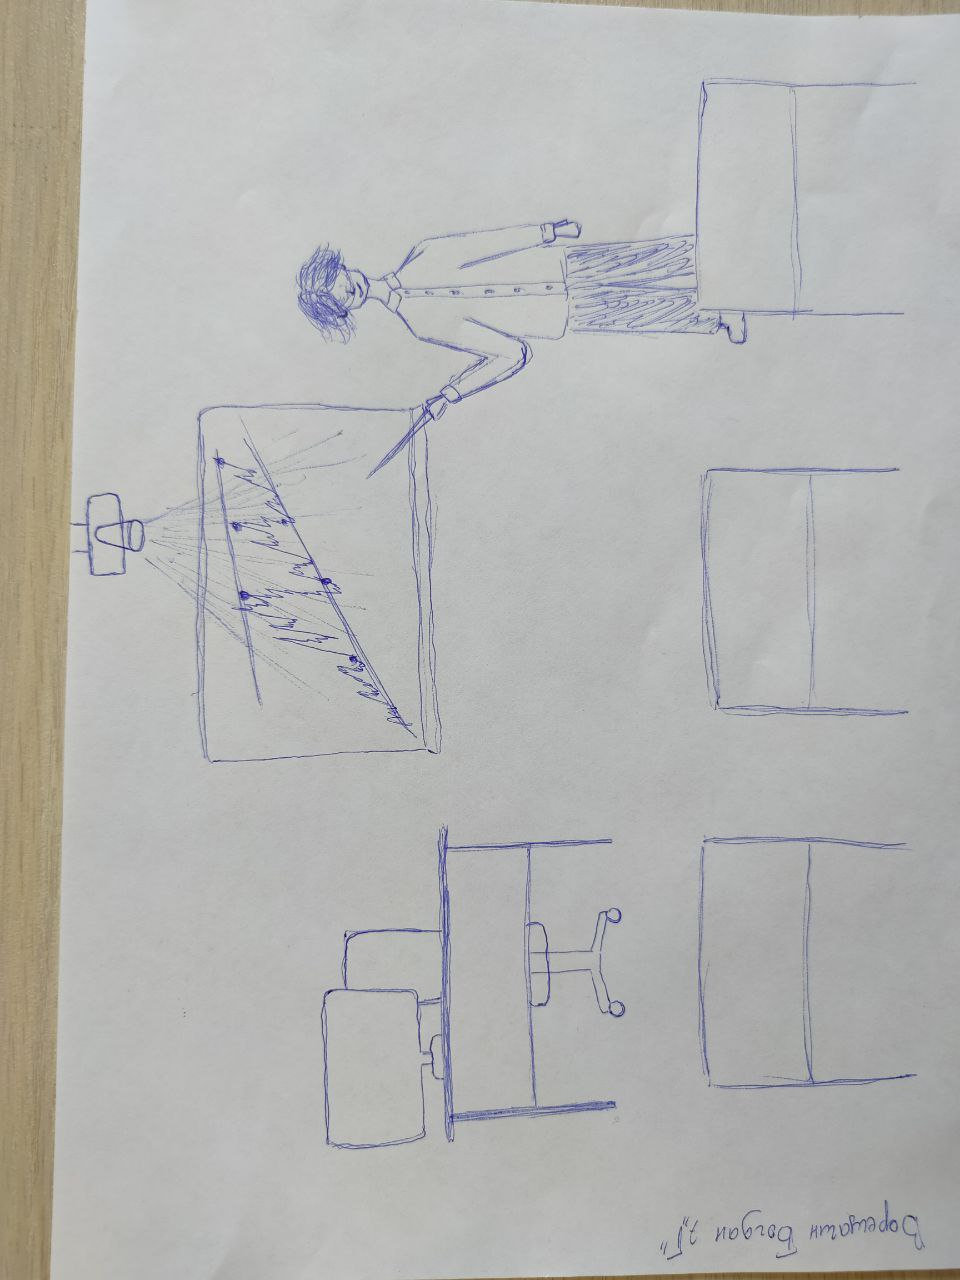 Верещагин Богдан 7 "Г"